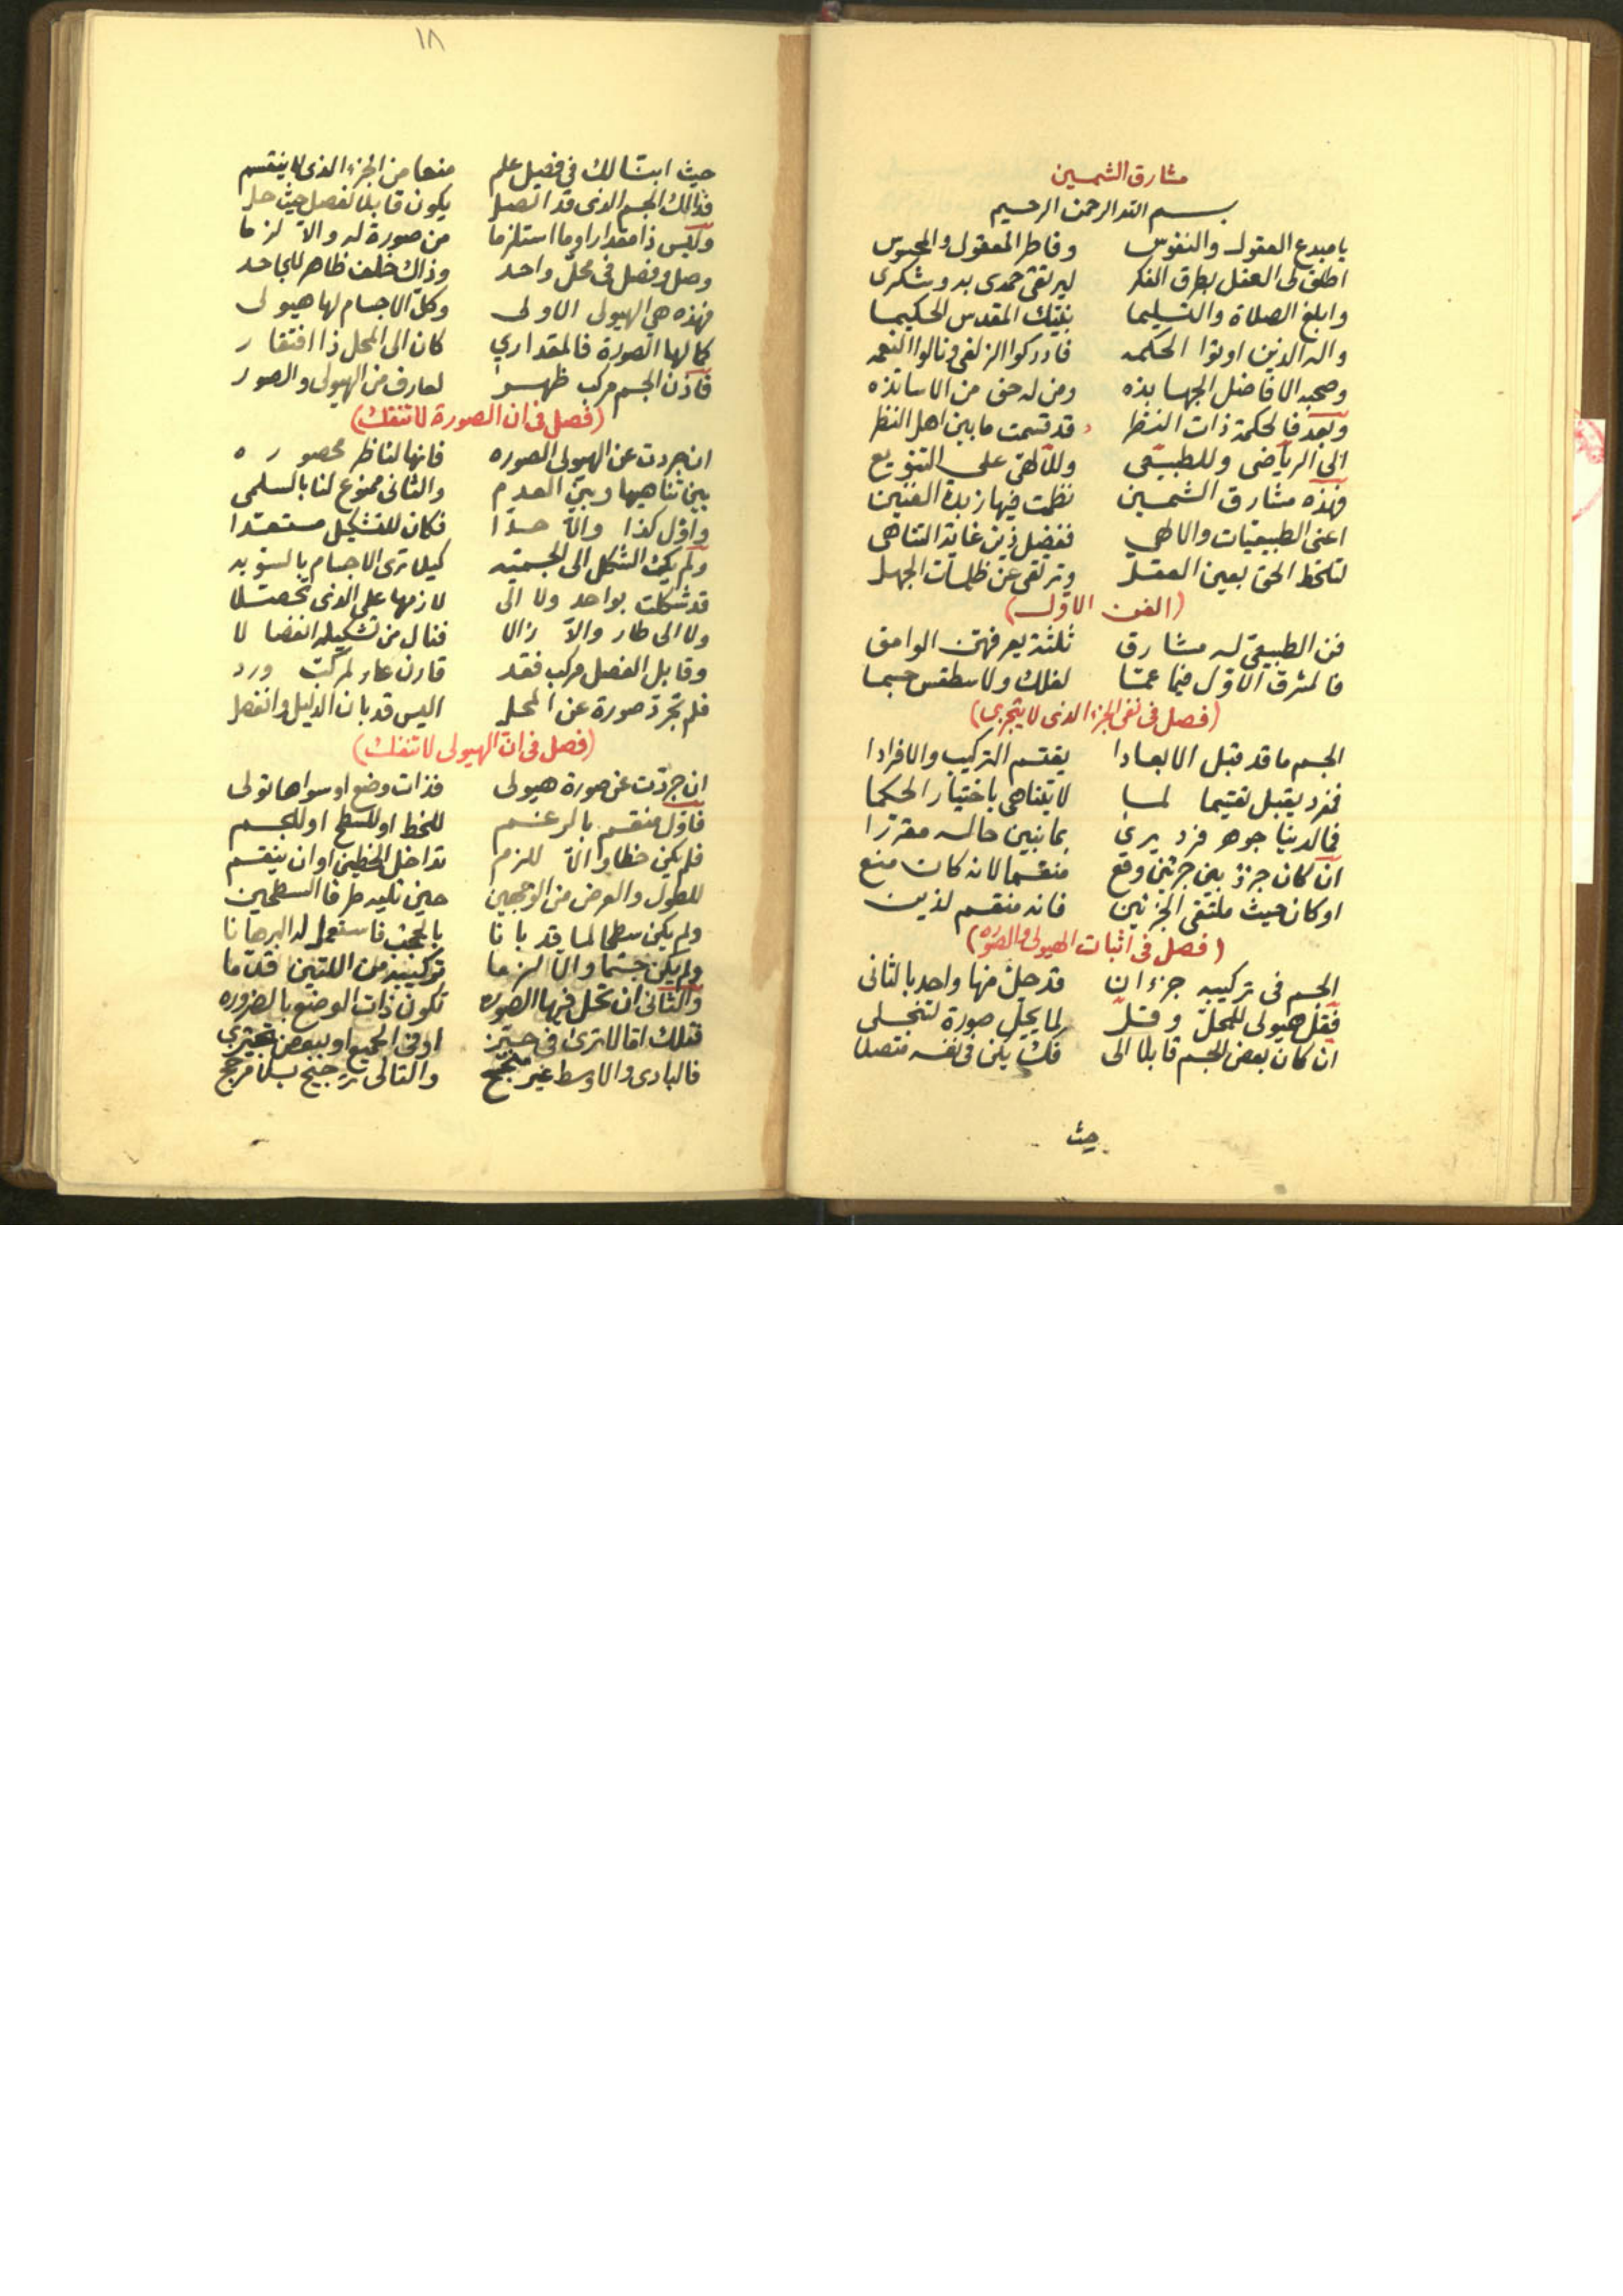 مشارق الشمسين
بسم الله الرحمن الرحيم
يا مبدع العقول والنفوس وفاطر المعقول والمحسوس
اطلق لى العقل بطرق الفكر ليرتقى حمدى به وشكرى
وابلغ الصلاة والتسليما نبيّك المقدس الحكيما
واله الذين اوتوا الحكمه فادركوا الزلفى ونالوا النعمه
وصحبه الافاضل الجهابذه ومن له حق من الاساتذه
وبعد فالحكمة ذات النظر قد قسمت ما بين اهل النظر
الى الرياضى وللطبيعى وللالهى على التنويع
فهذه مشارق الشمسين نظمت فيها زبدة الفنين
اعنى الطبيعيات والالهى ففضل ذين غاية التناهى
لتلحظ الحق بعين العقل وترتقى عن ظلمات الجهل
(الفن الاول)
فن الطبيعى له مشارق ثلثة يعرفهن الوامق
فالمشرق الاول فيما عمّا لفلك ولاسطقس جسما
(فصل فى نفى الجزء الذى لا يتجزى)
الجسم ما قد قبل الابعادا يقتسم التركيب والافرادا
فمفرد يقبل تقسيما لما لا يتناهى باختيار الحكما
فما لدينا جوهر فرد يرى بما نبين حاله مقررا
ان كان جزء بين جزئين وقع منقسما لانه كان منع
او كان حيث ملتقى الجزئين فانه منقسم لذين
(فصل فى اثبات الهيولى والصوره)
الجسم فى تركيبه جزءان قد حلّ منها واحد بالثانى
فقل هيولى للمحلّ وقل لما يحلّ صورة لتنجلى
ان كان بعض الجسم قابلا الى فك يكن فى نفسه متصلا
حيث
١٨
حيث ابنّا لك فى فصيل علم منعا من الجزء الذى لا ينقسم
فذالك الجسم الذى قد اتصل يكون قابلا لفصل حيث حل
وليس ذا مقدارا او ما استلزما من صورة له والا لزما
وصل وفصل فى محلّ واحد وذاك خلف ظاهر للجاحد
فهذه هى الهيولى الاولى وكل الاجسام لها هيولى
كما لها الصورة فالمقدارى كان الى المحل ذا افتقار
فاذن الجسم مركب ظهر لعارف من الهيولى والصور
(فصل فى ان الصورة لا تنفك)
ان جردت عن الهيولى الصوره فانها لناظر محصوره
بين تناهيها وبين العدم والثانى ممنوع لنا بالسلمى
واول كذا والا حدّا فكان للتشكيل مستعدّا
ولم يكن الشكل الى الجسميه كيلا ترى الاجسام بالسويه
قد شكلت بواحد ولا الى لازمها على الذى تحصّلا
ولا الى طار والا زالا فنال من تشكيله انفصالا
وقابل الفصل مركب فقد قارن عار لمركب ورد
فلم تجرد صورة عن المحل اليس قد بان الدليل وانفصل
(فصل فى ان الهيولى لا تنفك)
ان جردت عن صورة هيولى فذات وضع او سواها تولى
فاول منقسم بالرغم للخط او للسطح او للجسم
فلم يكن خطا والا للزم تداخل الخطين او ان ينقسم
للطول والعرض من الوجهين حين تليه طرفا السطحين
ولم يكن سطحا لما قد بانا بالجنب فاستعمل له البرهانا
ولم يكن جسما والا لزما تركيبه من اللتين قدّما
والثانى ان تحل فيها الصوره تكون ذات الوضع بالضروره
فتلك اما لا ترى فى حيّز او فى الجميع او ببعض
فالبادى والاوسط غير والتالى ترجيح بلا مرجح